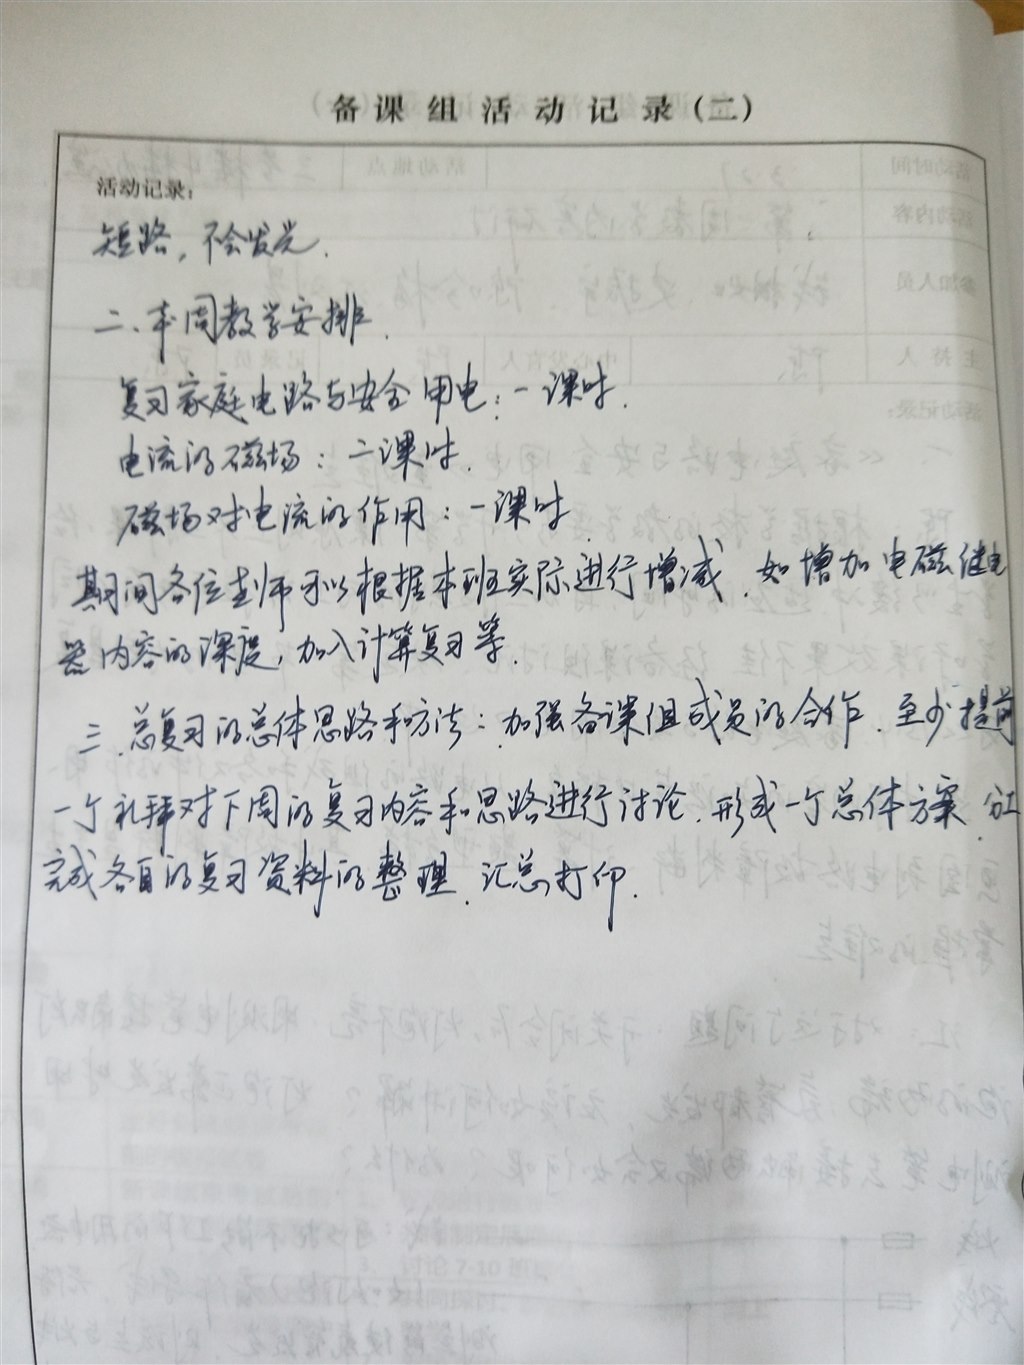 备课组活动记录(二)
活动记录:
短路,不会发光.
二、本周教学安排.
复习家庭电路与安全用电:一课时.
电流的磁场:二课时.
磁场对电流的作用:一课时.
期间各位老师可以根据本班实际进行增减.如增加电磁继电
器内容的深度,加入计算复习等.
三.总复习的总体思路和方法:加强备课组成员的合作.至少提前
一个礼拜对下周的复习内容和思路进行讨论.形成一个总体方案.分工
完成各自的复习资料的整理.汇总打印.